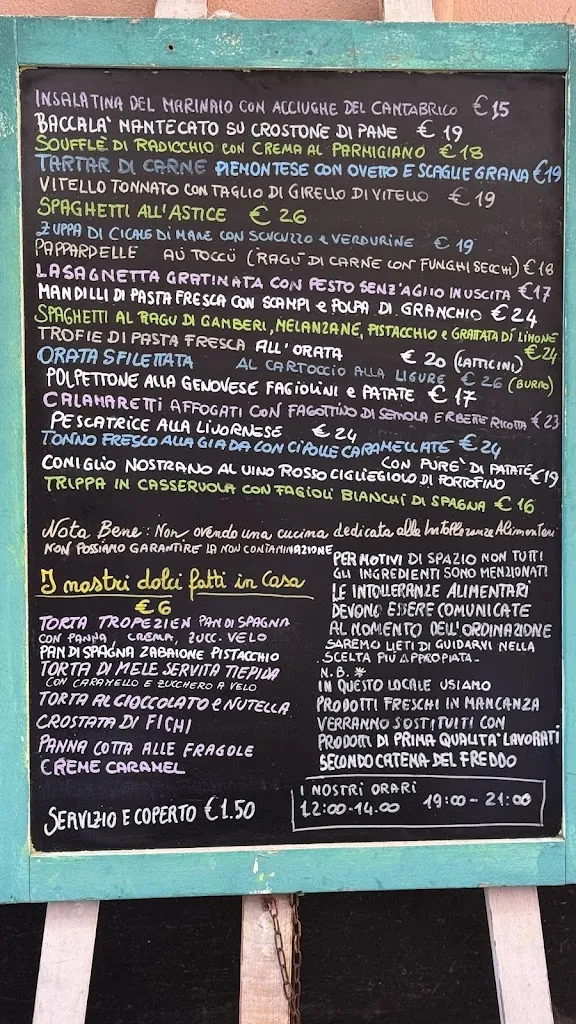 INSALATINA DEL MARINAIO CON ACCIUGHE DEL CANTABRICO € 15
BACCALA' MANTECATO SU CROSTONE DI PANE € 19
SOUFFLÈ DI RADICCHIO CON CREMA AL PARMIGIANO € 18
TARTAR DI CARNE PIEMONTESE CON OVETTO E SCAGLIE GRANA €19
VITELLO TONNATO CON TAGLIO DI GIRELLO DI VITELLO € 19
SPAGHETTI ALL'ASTICE € 26
ZUPPA DI CICALE DI MARE CON SCUCUZZO e VERDURINE € 19
PAPPARDELLE AÚ TOCCÚ (RAGÙ DI CARNE CON FUNGHI SECCHI) € 18
LASAGNETTA GRATINATA CON PESTO SENZ'AGLIO IN USCITA €17
MANDILLI DI PASTA FRESCA CON SCAMPI e POLPA DI GRANCHIO € 24
SPAGHETTI AL RAGU DI GAMBERI, MELANZANE, PISTACCHIO e GRATTATA DI LIMONE € 24
TROFIE DI PASTA FRESCA ALL'ORATA € 20 (LATTICINI)
ORATA SFILETTATA AL CARTOCCIO ALLA LIGURE € 26 (BURRO)
POLPETTONE ALLA GENOVESE FAGIOLINI e PATATE € 17
CALAMARETTI AFFOGATI CON FAGOTTINO DI SEMOLA ERBETTE RICOTTA € 23
PESCATRICE ALLA LIVORNESE € 24
TONNO FRESCO ALLA GIADA CON CIPOLLE CARAMELLATE € 24
CONIGLIO NOSTRANO AL VINO ROSSO CIGLIEGIOLO DI PORTOFINO CON PURE' DI PATATE €19
TRIPPA IN CASSERUOLA CON FAGIOLI BIANCHI DI SPAGNA € 16
Nota Bene: Non avendo una cucina dedicata alle Intolleranze Alimentari
NON POSSIAMO GARANTIRE LA NON CONTAMINAZIONE
I nostri dolci fatti in casa
€ 6
TORTA TROPEZIEN PAN DI SPAGNA
CON PANNA, CREMA, ZUCC. VELO
PAN DI SPAGNA ZABAIONE PISTACCHIO
TORTA DI MELE SERVITA TIEPIDA
CON CARAMELLO E ZUCCHERO A VELO
TORTA AL CIOCCOLATO e NUTELLA
CROSTATA DI FICHI
PANNA COTTA ALLE FRAGOLE
CREME CARAMEL
SERVIZIO E COPERTO €1.50
PER MOTIVI DI SPAZIO NON TUTTI
GLI INGREDIENTI SONO MENZIONATI
LE INTOLLERANZE ALIMENTARI
DEVONO ESSERE COMUNICATE
AL MOMENTO DELL'ORDINAZIONE
SAREMO LIETI DI GUIDARVI NELLA
SCELTA PIÙ APPROPIATA.
N.B. *
IN QUESTO LOCALE USIAMO
PRODOTTI FRESCHI IN MANCANZA
VERRANNO SOSTITUITI CON
PRODOTTI DI PRIMA QUALITA' LAVORATI
SECONDO CATENA DEL FREDDO
I NOSTRI ORARI
12:00-14.00 19:00-21:00